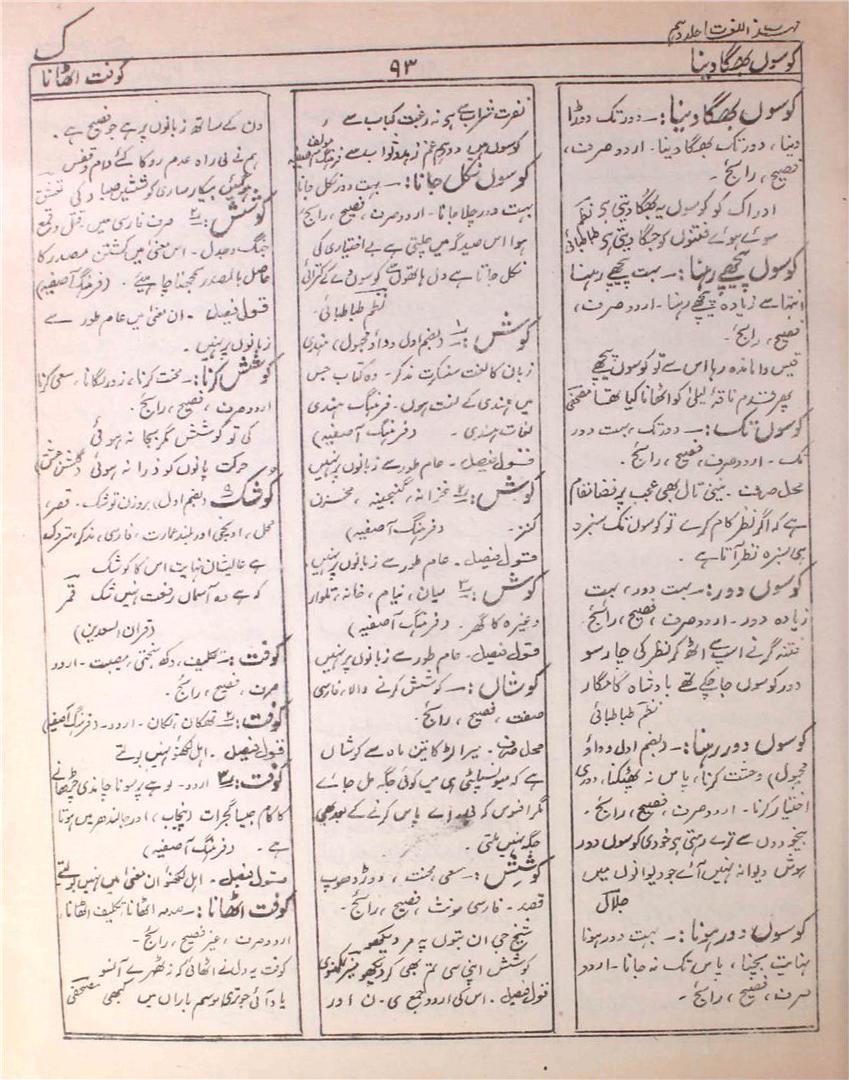 تہذیب اللغت (جلد دہم)
ک
کوسوں بھگا دینا
۹۳
کوفت اٹھانا
کوسوں بھگا دینا:۔ دور تک دوڑا
دینا، دور تک بھگا دینا۔ اردو صرف،
فصیح، رائج۔
ادراک کو کوسوں یہ بھگا دیتی ہی نظم
سوئے ہوئے فتنوں کو جگا دیتی ہی طباطبائی
کوسوں پیچھے رہنا:۔ بہت پیچھے رہنا
انتہا سے زیادہ پیچھے رہنا۔ اردو صرف،
فصیح، رائج۔
قیس واماندہ رہا اس سے تو کوسوں پیچھے
پھر قدم ناقۂ لیلیٰ کو اٹھانا کیا تھا مصحفی
کوسوں تک:۔ دور تک، بہت دور
تک۔ اردو صرف، فصیح، رائج۔
محل صرف۔ نینی تال بھی عجب پر فضا مقام
ہے کہ اگر نظر کام کرے تو کوسوں تک سبزہ
ہی سبزہ نظر آتا ہے۔
کوسوں دور:۔ بہت دور، بہت
زیادہ دور۔ اردو صرف، فصیح، رائج۔
فتنہ گر نے اسپ سے اٹھ کر نظر کی چار سو
دور کوسوں جا چکے تھے بادشاہ کامگار
نظم طباطبائی
کوسوں دور رہنا:۔ (بضم اول و واؤ
مجہول) وحشت کرنا، پاس نہ پھٹکنا، دوری
اختیار کرنا۔ اردو صرف، فصیح، رائج۔
بیخودوں سے ترے رہتی ہی خودی کوسوں دور
ہوش دیوانہ نہیں آئے جو دیوانوں میں
جلال
کوسوں دور ہونا:۔ بہت دور ہونا
نہایت بچنا، پاس تک نہ جانا۔ اردو
صرف، فصیح، رائج۔
نفرت شراب سے ہو نہ رغبت کباب سے
کوسوں ہیں دور ہم زہد و ثواب سے مؤلف فرہنگ آصفیہ
کوسوں نکل جانا:۔ بہت دور نکل جانا
بہت دور چلا جانا۔ اردو صرف، فصیح، رائج۔
ہوا اس صیدگہ میں چلتی ہے بے اختیاری کی
نکل جاتا ہے دل ہاتھوں سے کوسوں بے کترائی
نظم طباطبائی
کوش:۔ ۱ (بضم اول و واؤ مجہول) ہندی
زبان کا لغت سنسکرت مذکر۔ وہ کتاب جس
میں ہندی کے لغت ہوں۔ فرہنگ ہندی
لغات ہندی۔ (فرہنگ آصفیہ)
قول فیصل۔ عام طور سے زبانوں پر نہیں
کوش:۔ ۲ خزانہ، گنجینہ، مخزن
کنز۔ (فرہنگ آصفیہ)
قول فیصل۔ عام طور سے زبانوں پر نہیں
کوش:۔ ۳ میان، نیام، خانہ، تلوار
وغیرہ کا گھر۔ (فرہنگ آصفیہ)
قول فیصل۔ عام طور سے زبانوں پر نہیں
کوشاں:۔ کوشش کرنے والا۔ فارسی
صفت، فصیح، رائج۔
محل صرف۔ میرا لڑکا تین ماہ سے کوشاں
ہے کہ میونسپلٹی ہی میں کوئی جگہ مل جائے
مگر افسوس کہ بی۔ اے پاس کرنے کے بعد بھی
جگہ نہیں ملتی۔
کوشش:۔ سعی، محنت، دوڑ دھوپ
قصد۔ فارسی مونث، فصیح، رائج۔
شیخ جی ان بتوں پہ مر دیکھو
کوشش اپنی سی تم بھی کر دیکھو میر لکھنوی
قول فیصل۔ اس کی اردو جمع ی۔ ن اور
دن کے ساتھ زبانوں پر ہے جو فصیح ہے۔
ہم نے لی راہ عدم روکا کئے دام و قفس
ہو گئیں بیکار ساری کوششیں صیاد کی تعشق
کوشش:۔ ۲ صرف فارسی میں، قتل و قمع
جنگ و جدل۔ اس معنی میں کشتن مصدر کا
حاصل بالمصدر سمجھنا چاہیئے۔ (فرہنگ آصفیہ)
قول فیصل۔ ان معنی میں عام طور سے
زبانوں پر نہیں۔
کوشش کرنا:۔ محنت کرنا، زور لگانا، سعی کرنا
اردو صرف، فصیح، رائج۔
کی تو کوشش مگر بجا نہ ہوئی
حرکت پانوں کو ذرا نہ ہوئی (گلشن عشق)
کوشک:۔ (بضم اول) بر وزن توشک۔ قصر،
محل، اونچی اور بلند عمارت، فارسی، مذکر، متروک
ہے عالیشان نہایت اس کا کوشک
کہ ہے وہ آسماں رفعت نہیں شک قمر
(قران السعدین)
کوفت:۔ تکلیف، دکھ، سختی، مصیبت۔ اردو
صرف، فصیح، رائج۔
کوفت:۔ ۲ تھکان، تکان۔ اردو۔ (فرہنگ آصفیہ)
قول فیصل۔ اہل لکھنؤ نہیں بولتے
کوفت:۔ ۳ اردو۔ لوہے پر سونا چاندی چڑھانے
کا کام جیسا گجرات (پنجاب) اور جالندھر میں ہوتا
ہے۔ (فرہنگ آصفیہ)
قول فیصل۔ اہل لکھنؤ ان معنی میں نہیں بولتے
کوفت اٹھانا:۔ صدمہ اٹھانا، تکلیف اٹھانا،
اردو صرف، غیر فصیح، رائج۔
کوفت یہ دل نے اٹھائی کہ نہ ٹھہرے آنسو
یاد آئی جو تری موسم باراں میں کبھی مصحفی